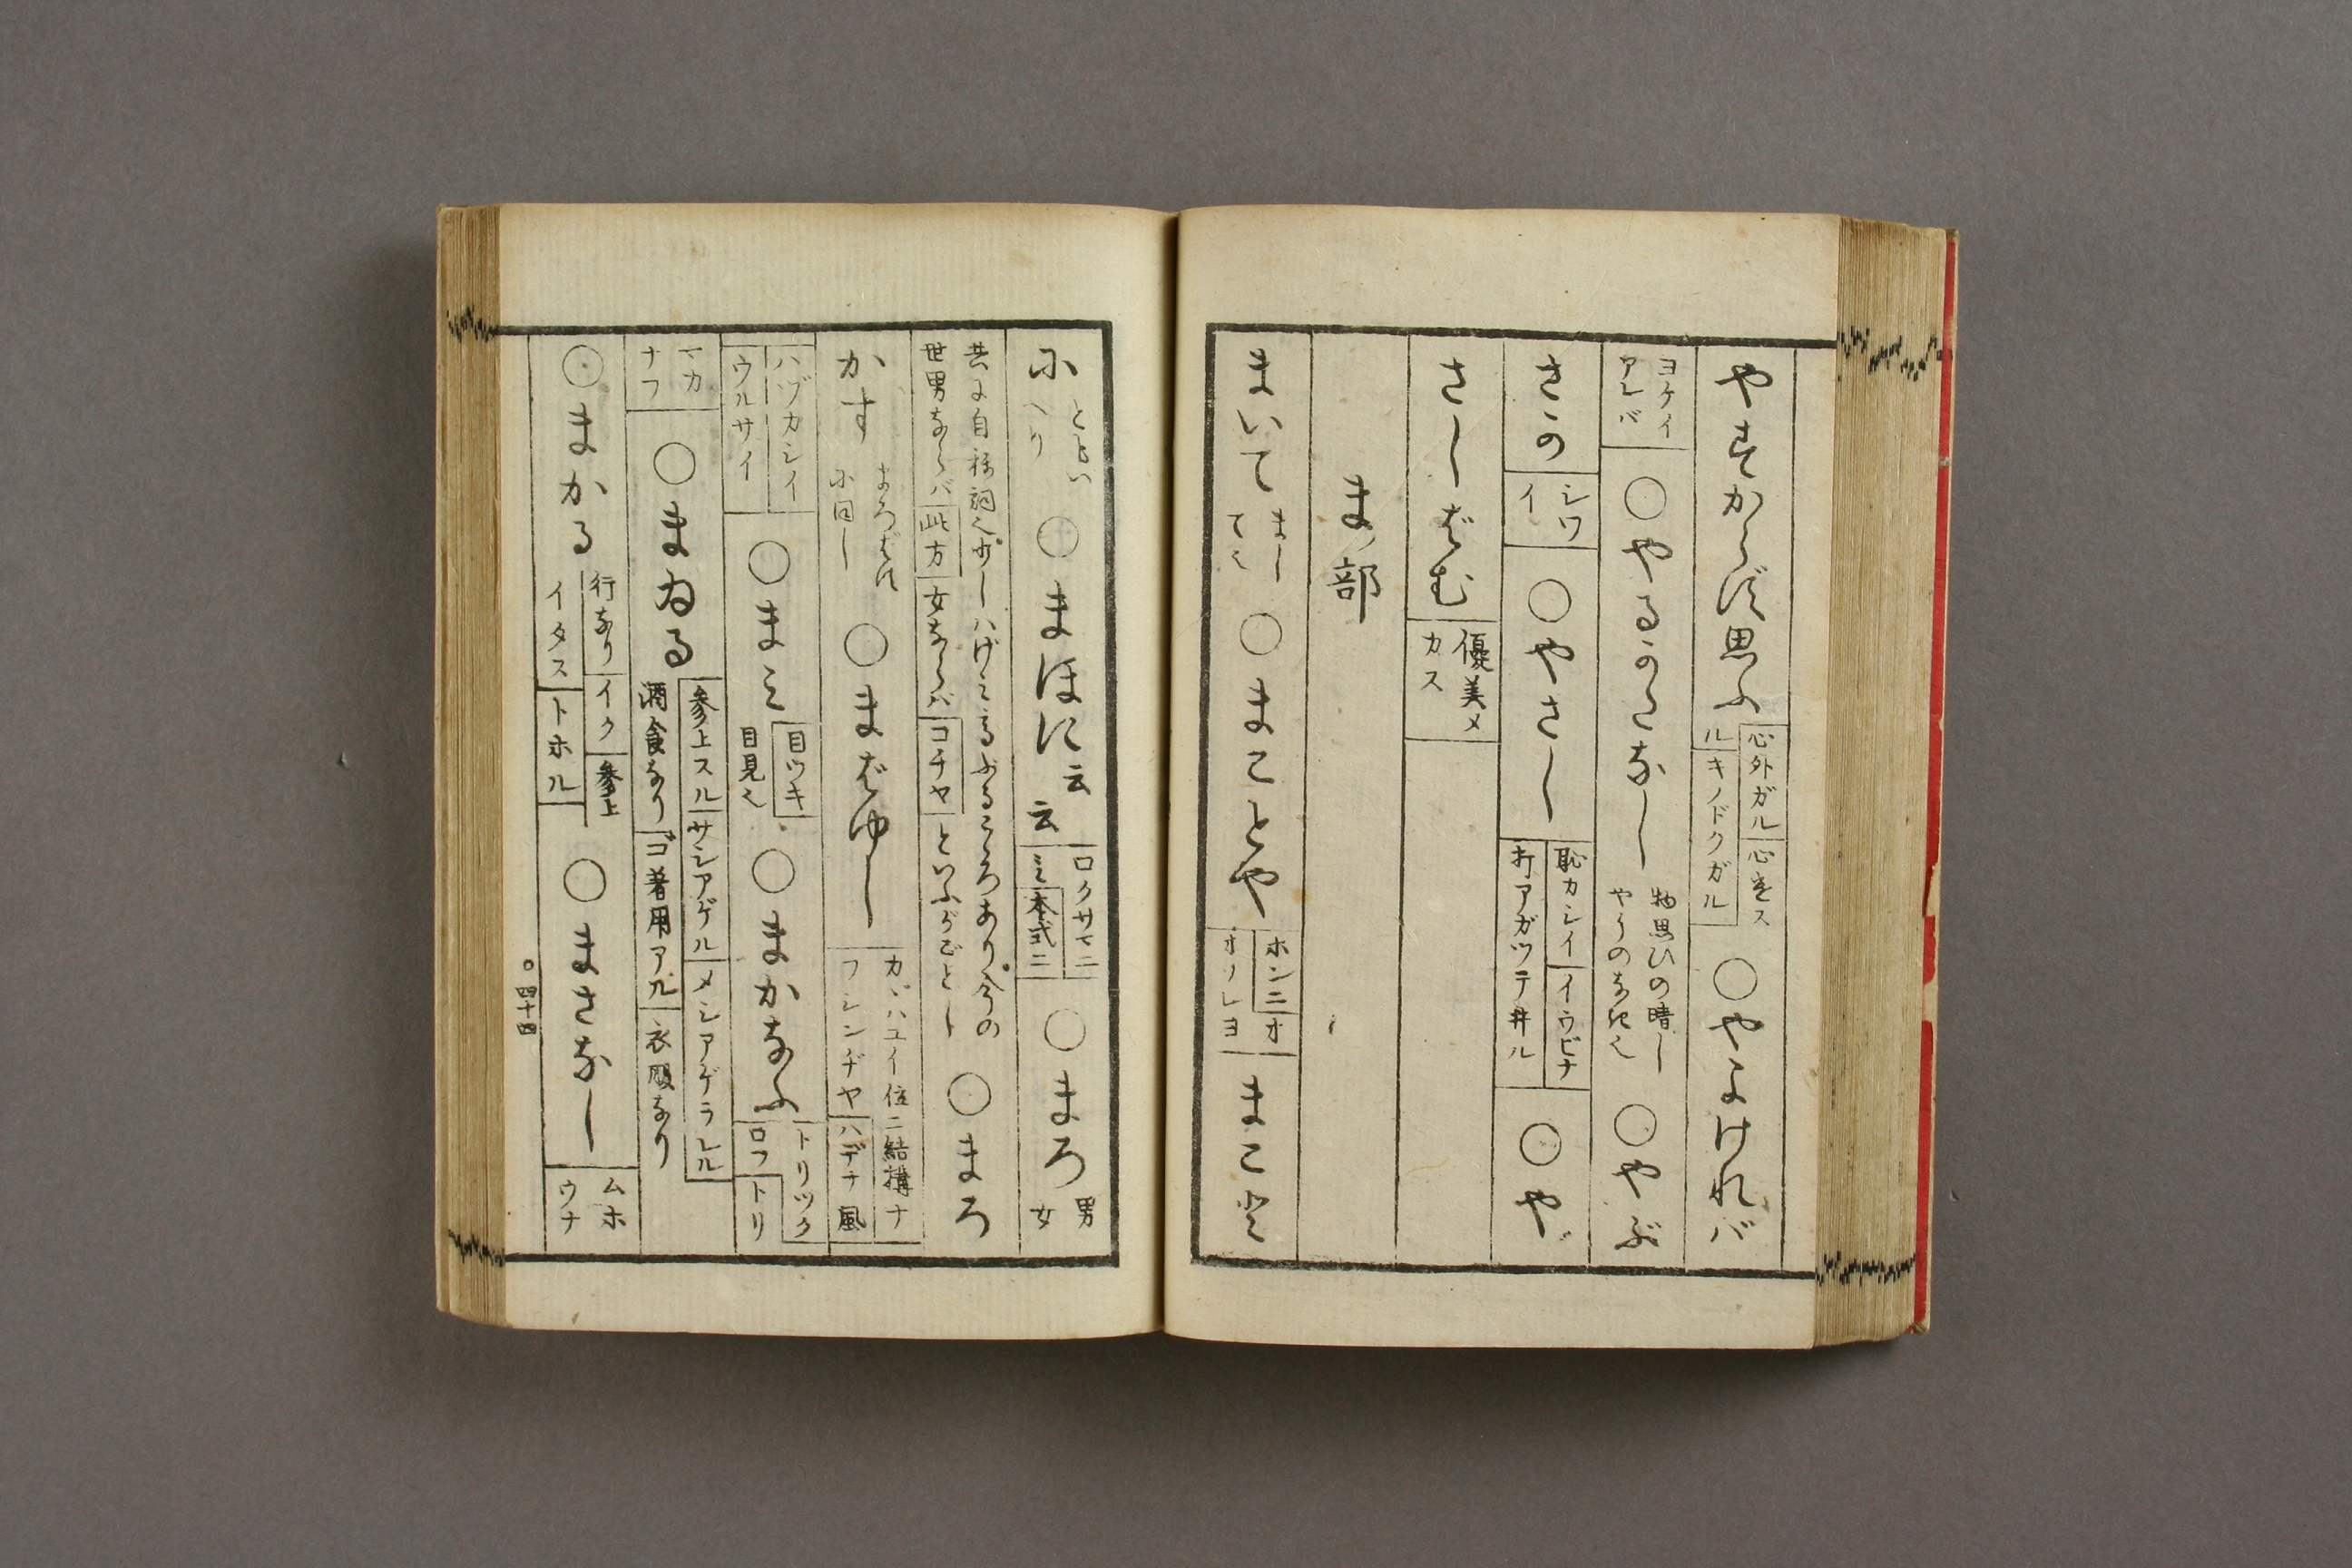 やすからず思ふ 心外ガル 心遣ス キノドクガル ○やよけれバ
ヨケイアレバ ○やるかたなし 物思ひの晴しやりのなき也 ○やぶ
さか シワイ ○やさし 恥カシイ イウビナ 打アガツテ井ル ○や
さしばむ 優美メカス
ま部
まいて ましてく ○まことや ホンニオ オソレヨ まこと
にといへり ○まほに云云 ロクサマニ ミ 本式ニ ○まろ 男女
共に自称詞也少しハげミたるぶるこゝろあり今の
世男ならバ此方女ならバコチヤといふがごとし ○まろ
かす まろばす に同し ○まばゆし カヾハユイ位ニ結構ナ フレンヂヤ ハデナ風
ハヅカシイ ウルサイ ○まミ 目ツキ 目見也 ○まかなふ トリツクロフ トリ
マカナフ ○まゐる 参上スル サシアゲル メシアゲラレル 酒食なり ゴ着用アル 衣服なり
○まかる 行なり イク 参上イタス トホル ○まさなし ムホウナ
○四十四